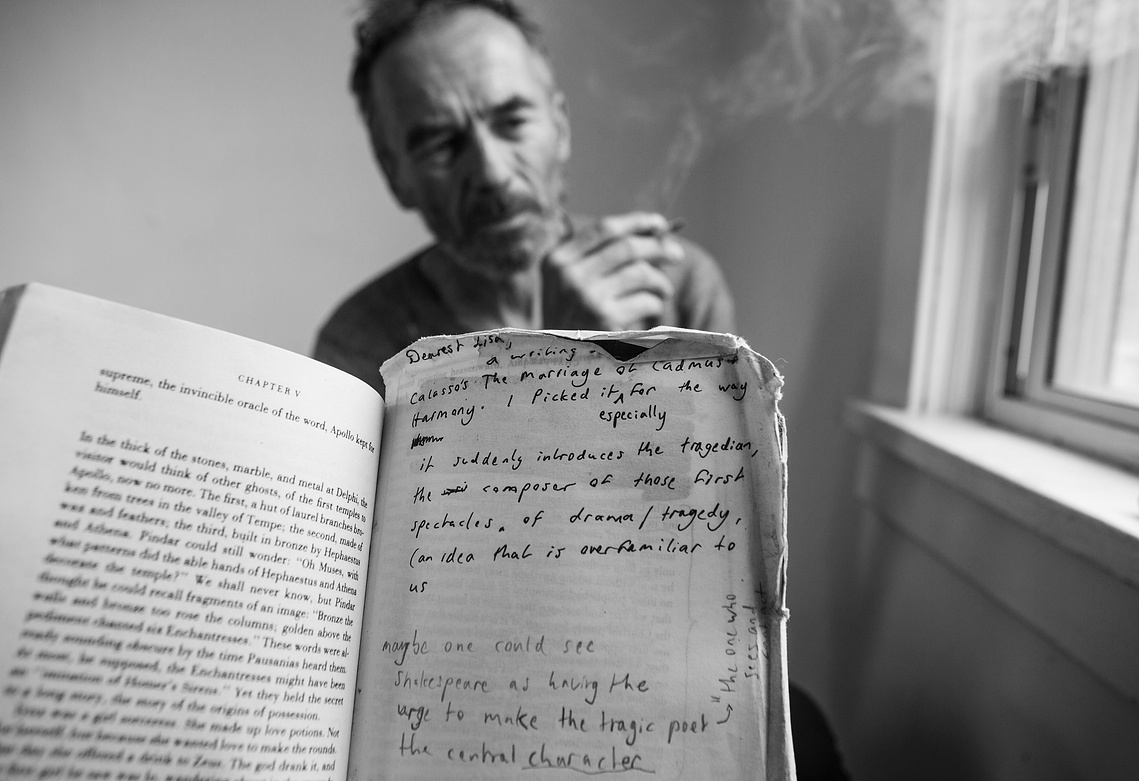 CHAPTER V
supreme, the invincible oracle of the word, Apollo kept for
himself.
In the thick of the stones, marble, and metal at Delphi, the
visitor would think of other ghosts, of the first temples to
Apollo, now no more. The first, a hut of laurel branches bro-
ken from trees in the valley of Tempe; the second, made of
wax and feathers; the third, built in bronze by Hephaestus
and Athena. Pindar could still wonder: "Oh Muses, with
what patterns did the able hands of Hephaestus and Athena
decorate the temple?" We shall never know, but Pindar
thought he could recall fragments of an image: "Bronze the
walls and bronze too rose the columns; golden above the
pediment chanted six Enchantresses." These words were al-
ready sounding obscure by the time Pausanias heard them.
At most, he supposed, the Enchantresses might have been
an "imitation of Homer's Sirens." Yet they held the secret
to a long story, the story of the origins of possession.
Iynx was a girl sorceress. She made up love potions. Not
for herself, but because she wanted love to make the rounds.
she offered a drink to Zeus. The god drank it, and
Dearest Lisa,
a writing -
Calasso's The Marriage of Cadmus +
Harmony. I Picked it, for the way
especially
it suddenly introduces the tragedian,
the composer of those first
spectacles, of drama/tragedy,
(an idea that is overfamiliar to
us
maybe one could see
Shakespeare as having the
urge to make the tragic poet
the central character
"the one who
sees and